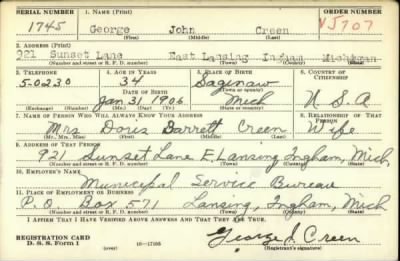 SERIAL NUMBER 1. NAME (Print) ORDER NUMBER
1745 George John Creen V5707
(First) (Middle) (Last)
2. ADDRESS (Print)
921 Sunset Lane East Lansing Ingham Michigan
(Number and street or R. F. D. number) (Town) (County) (State)
3. TELEPHONE 4. AGE IN YEARS 5. PLACE OF BIRTH 6. COUNTRY OF CITIZENSHIP
5-0230 34 Saginaw
DATE OF BIRTH (Town or county)
Jan 31 1906 Mich U S A
(Exchange) (Number) (Mo.) (Day) (Yr.) (State or country)
7. NAME OF PERSON WHO WILL ALWAYS KNOW YOUR ADDRESS 8. RELATIONSHIP OF THAT PERSON
Mrs Doris Barrett Creen Wife
(Mr., Mrs., Miss) (First) (Middle) (Last)
9. ADDRESS OF THAT PERSON
921 Sunset Lane E. Lansing Ingham, Mich.
(Number and street or R. F. D. number) (Town) (County) (State)
10. EMPLOYER'S NAME
Municipal Service Bureau
11. PLACE OF EMPLOYMENT OR BUSINESS
P. O. Box 571 Lansing, Ingham, Mich
(Number and street or R. F. D. number) (Town) (County) (State)
I AFFIRM THAT I HAVE VERIFIED ABOVE ANSWERS AND THAT THEY ARE TRUE.
REGISTRATION CARD
D. S. S. Form 1 16-17105 George J. Creen
(Registrant's signature)